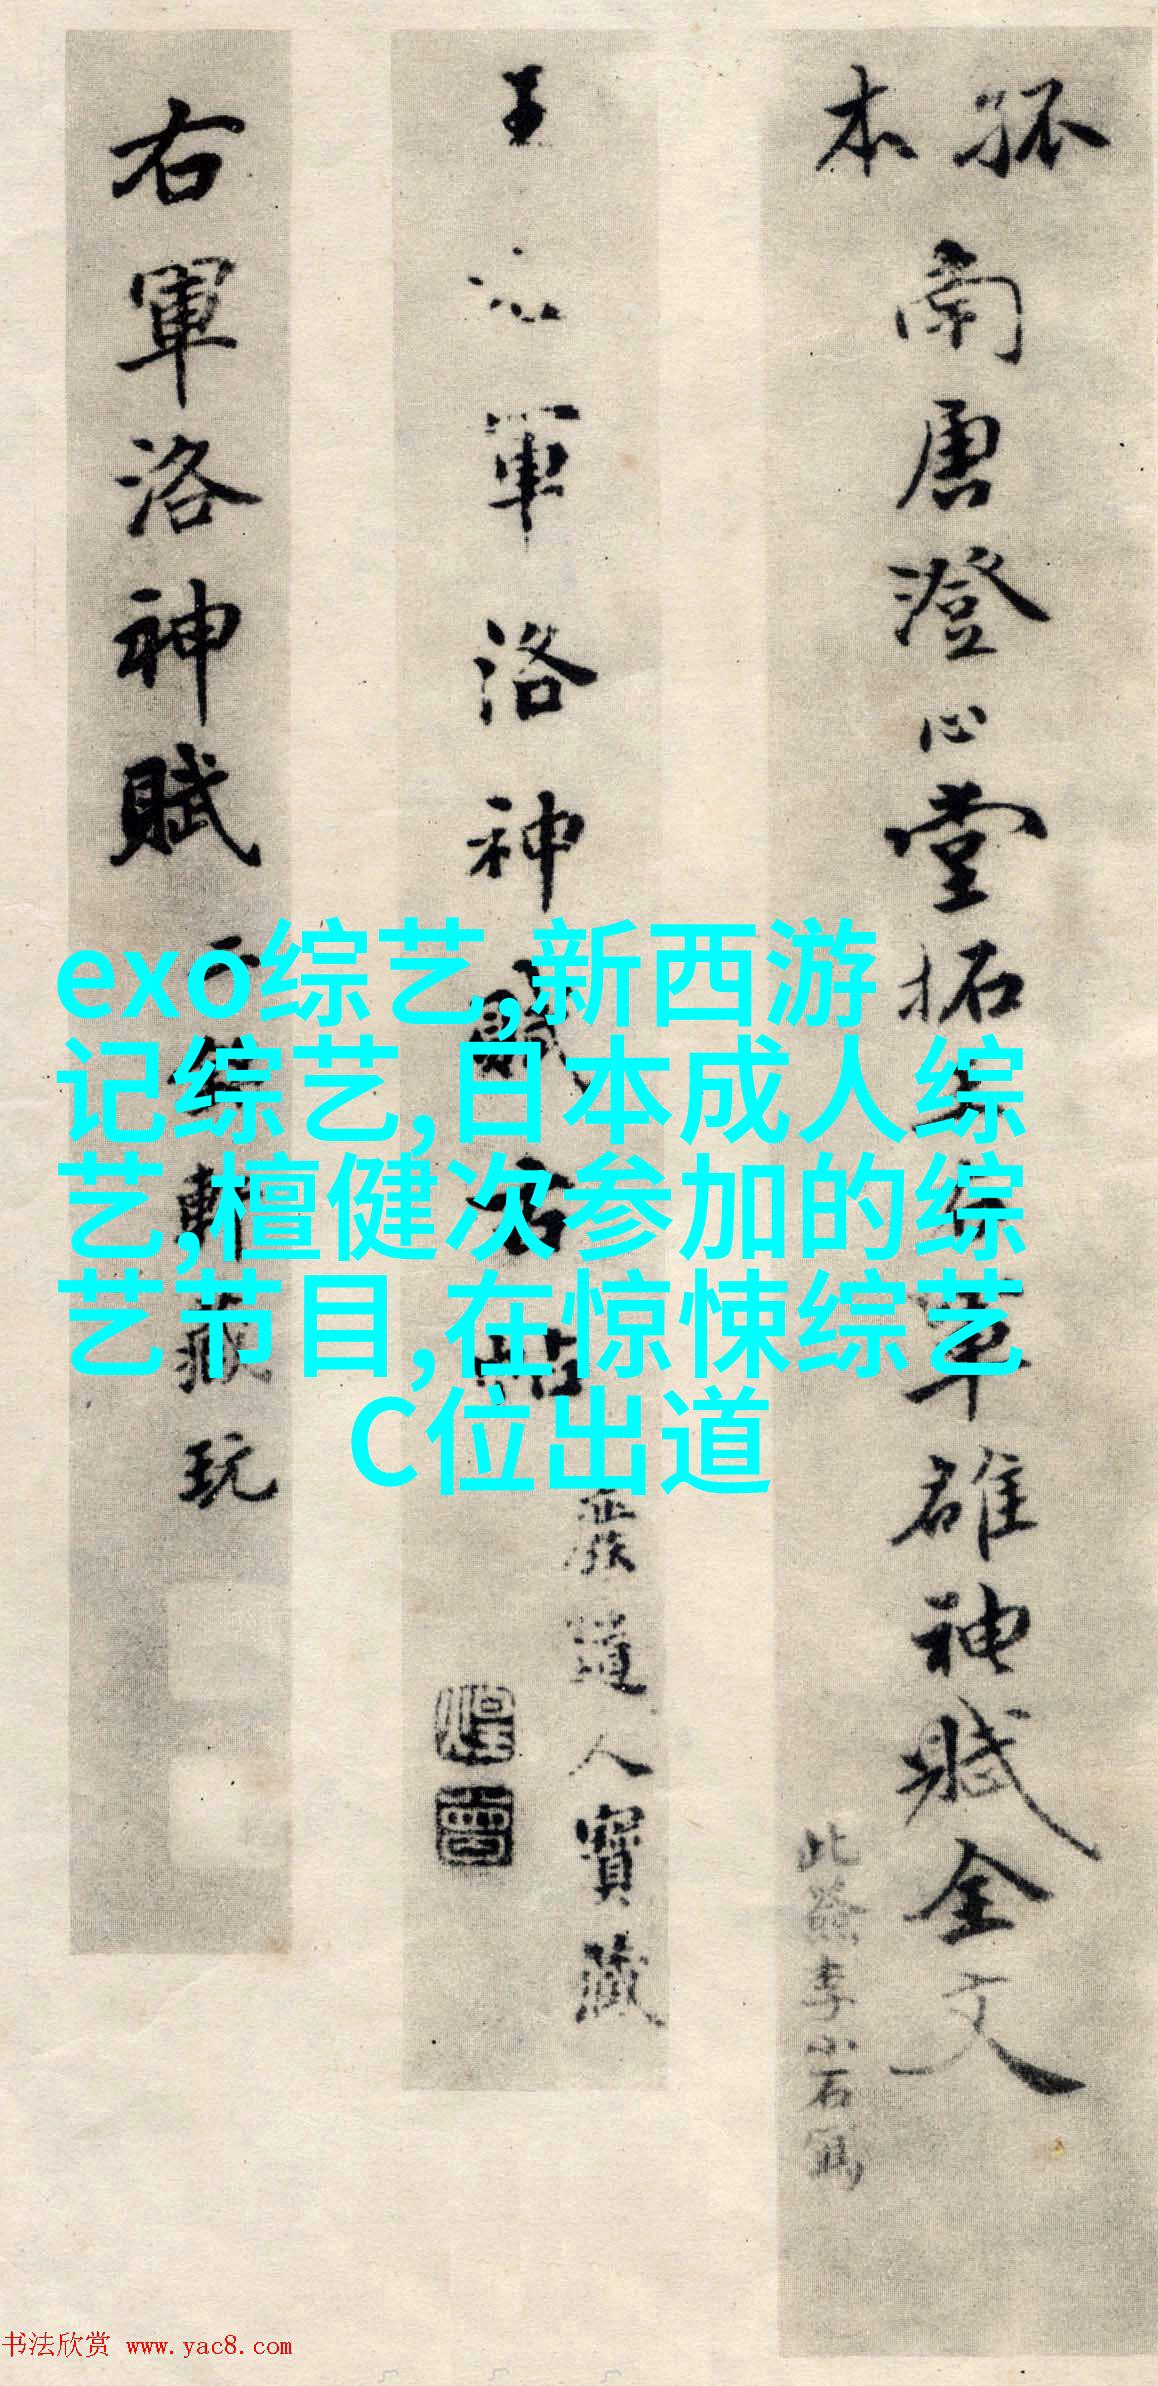 孤本
南唐澄心堂拓右軍雒神賦全文
此簽李小石寫
王右軍洛神賦
道人寶藏
右軍洛神賦
軒藏玩
exo综艺,新西游
记综艺,日本成人综
艺,檀健次参加的综
艺节目,在惊悚综艺
C位出道
书法欣赏 www.yac8.com